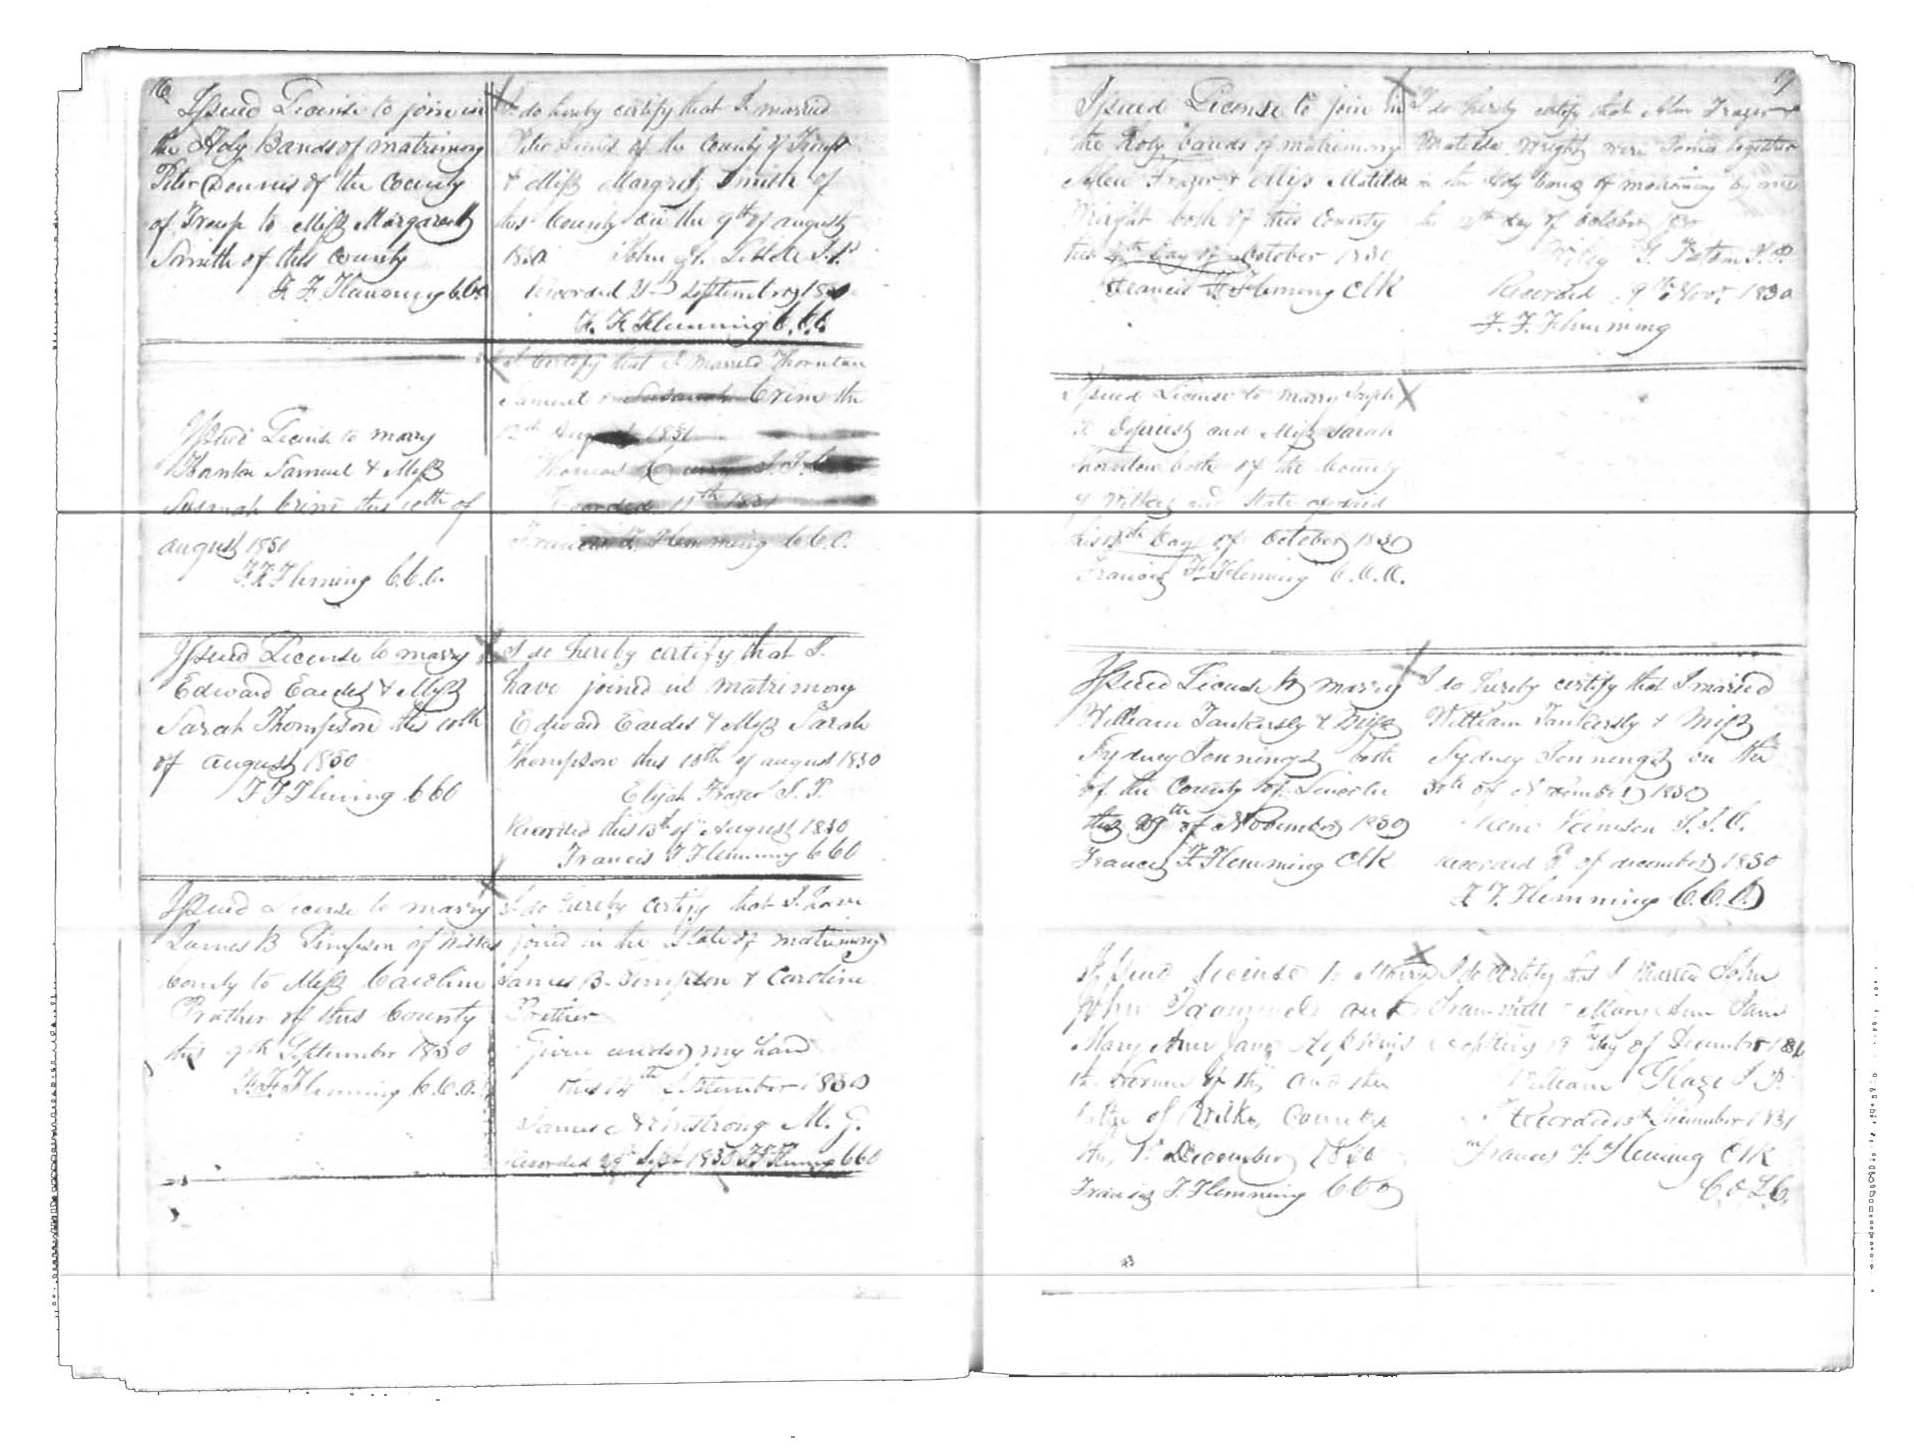 16
Issued License to join in
the Holy Bands of matrimony
Peter Dennis of the County
of Troup to Miss Margarett
Smith of this County
F. F. Flemming C.C.O.
I do hereby certify that I married
Peter Dennis of the County of Troup
& Miss Margret Smith of
this County on the 9th of august
1830 John H. S.P.
Recorded 21st September 1830
F. F. Flemming C.C.O.
Issued License to marry
Thornton Samuel & Miss
Susanah Crim this 10th of
august 1830
F. F. Fleming C.C.O.
I Certify that I married Thornton
Samuel & Susanah Crim the
12th August 1831
Thomas J.I.C.
Recorded 11th 1831
Francis F. Flemming C.C.O.
Issued License to marry
Edward Eardes & Miss
Sarah Thompson this 10th
of august 1830
F F Fleming C C O
I do hereby certify that I
have joined in matrimony
Edward Eardes & Miss Sarah
Thompson this 10th of august 1830
Elijah Frazer J. P.
Recorded this 13th of August 1830
Francis F Flemming C C O
Issued License to marry
James B Simpson of Wilkes
County to Miss Caroline
Prather of this County
this 9th September 1830
F. F. Fleming C.C.O.
I do hereby certify that I have
joined in the State of matrimony
James B. Simpson & Caroline
Prather
Given under my hand
this 14th September 1830
James Armstrong M. G.
Recorded 29th Sept 1830 F F Fleming C C O
17
Issued License to join in
the Holy bands of matrimony
Alen Frazer & Miss Matilda
Wright both of this County
this 4th day of October 1830
Francis F Fleming Clk
I do hereby certify that Alen Frazer &
Matilda Wright were Joined together
in the Holy bonds of matrimony by me
the day of October 1830
Wiley G. J.P.
Recorded 9th Novr 1830
F. F. Flemming
Issued License to marry Joseph
and Miss Sarah
Thornton both of the County
of Wilkes and State aforesaid
this day of October 1830
Francis F. Fleming C.C.O.
Issued License to marry
William Tankersly & Miss
Sydney Jennings both
of the County of Lincoln
this 29th of November 1830
Francis F. Flemming Clk
I do hereby certify that I married
William Tankersly & Miss
Sydney Jennings on the
30th of November 1830
J.I.C.
Recorded of december 1830
F. F. Flemming C.C.O
Issued License to Marry
John Trammell and
Mary Ann Jane Hopkins
the former of this and the
latter of Wilkes County
the 1st December 1830
Francis F. Flemming C C O
I do certify that I Married John
Trammell Mary Ann Jane
Hopkins 19 day of December
William Glaze J.P.
Recorded December 1831
Francis F Fleming Clk